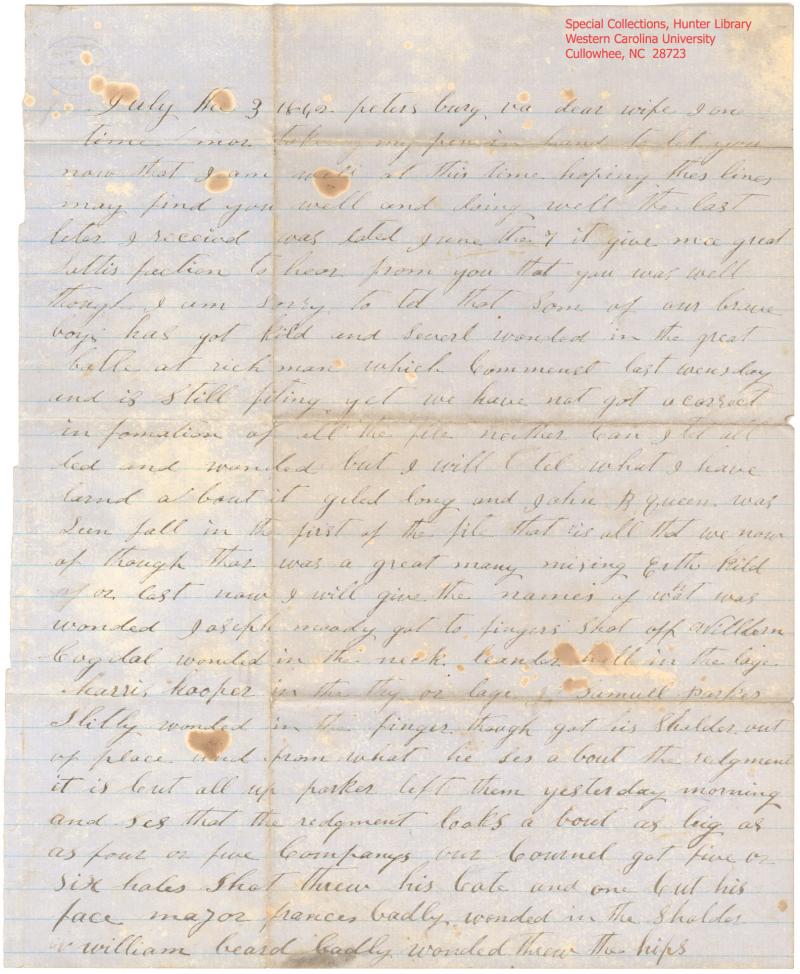 Special Collections, Hunter Library
Western Carolina University
Cullowhee, NC 28723
July the 3 1862 peters burg va dear wife I on
time mor taking my pen in hand to let you
now that I am well at this time hoping thes lines
may find you well and doing well the last
leter I receivd was dated June the 7 it give mee great
sattis faction to hear from you that you was well
though I am sorry to tel that som of our brave
boys has got kild and severl wonded in the great
battle at rich man which Commenst last wensday
and is still fiting yet we have not got a correct
in fomation of all the fite neither Can I tel all
ded and wonded but I will tel what I have
larnd a bout it long and John B queen was
seen fall in the first of the fite that is all that we now
of though thar was a great many mising Eithe kild
or last now I will give the names of wat was
wonded Joseph moody got to fingers shot off
Cogdal wonded in the neck leander in the lage
Harris hooper in the thy or lage Samuell parker
Slitly wonded in the finger though got his sholder out
of place and from what he ses a bout the redgment
it is Cut all up parker left them yesterday morning
and ses that the redgment looks a bout as big as
as four or five Companys our Cournel got five or
six holes shot threw his Cote and one Cut his
face major frances badly wonded in the sholder
william beard badly wonded threw the hips